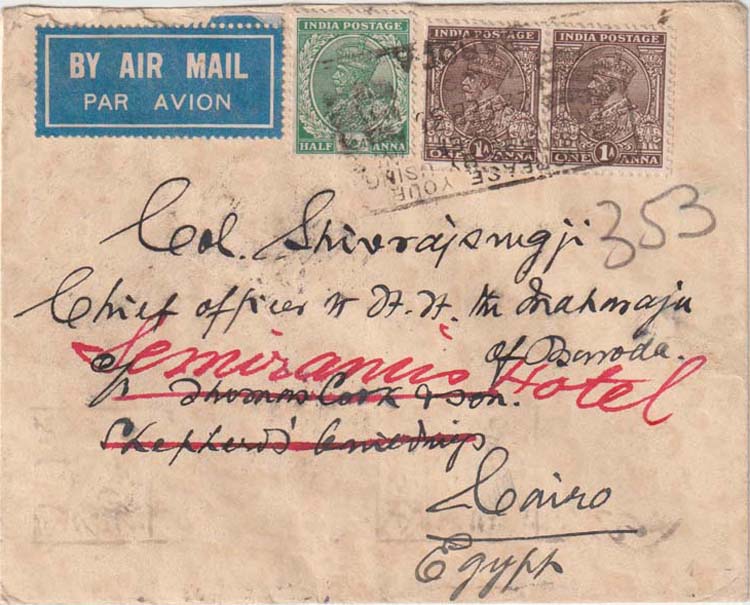 BY AIR MAIL
PAR AVION
INDIA POSTAGE
HALF ANNA
INDIA POSTAGE
ONE 1A ANNA
INDIA POSTAGE
ONE 1A ANNA
YOUR
USING
353
Col. Shivrajsingji
Chief officer to H.H. the Maharaja
of Baroda.
Semiramis Hotel
c/o Thomas Cook & Son.
Shepherds' Buildings
Cairo
Egypt